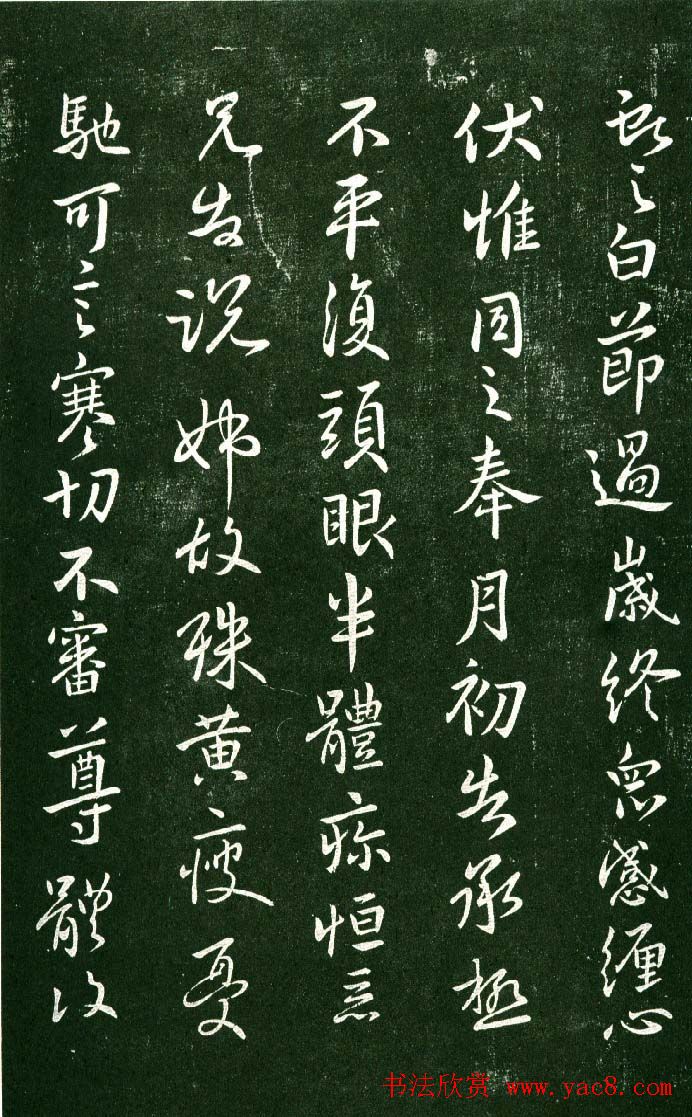 献之白節過歲終眾感纏心
伏惟同之奉月初告承極
不平復頭眼半體疼恒惡
兄告說姊故殊黄瘦憂
馳可言寒切不審尊體復
书法欣赏 www.yac8.com